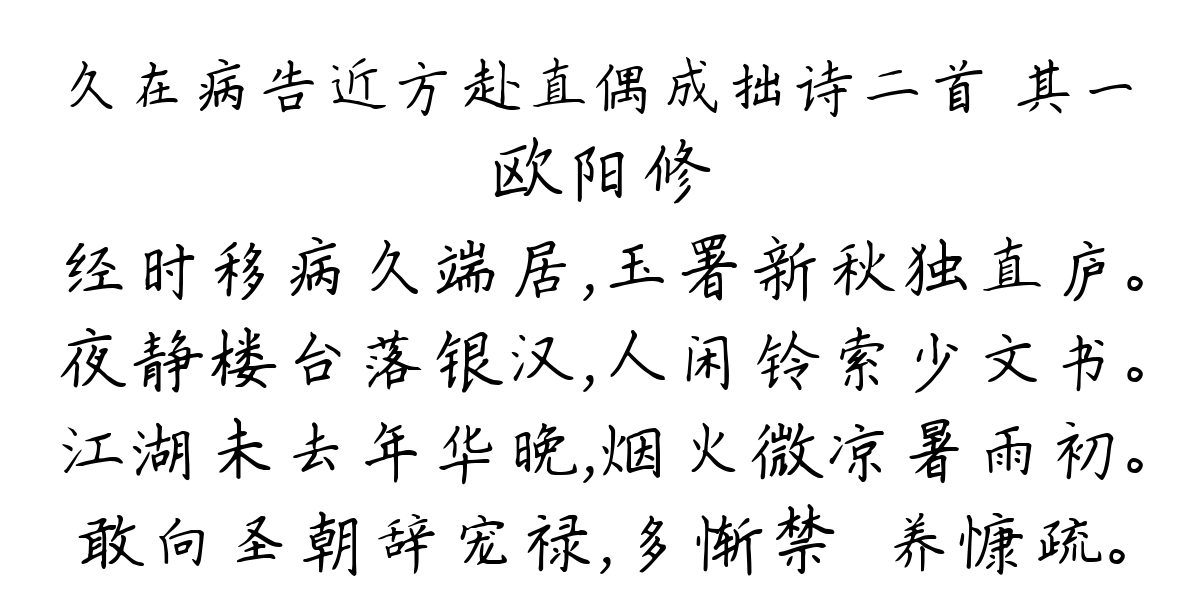 久在病告近方赴直偶成拙诗二首 其一
欧阳修
经时移病久端居,玉署新秋独直庐。
夜静楼台落银汉,人闲铃索少文书。
江湖未去年华晚,烟火微凉暑雨初。
敢向圣朝辞宠禄,多惭禁 养慵疏。